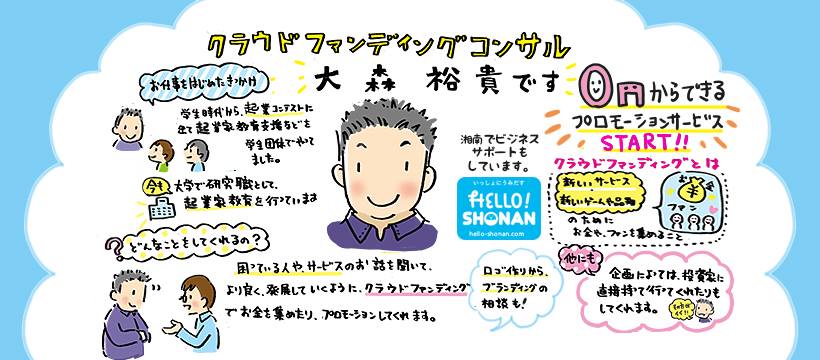 クラウドファンディングコンサル
大森裕貴です
お仕事をはじめたきっかけ
学生時代から、起業コンテストに
出て起業家教育支援などを
学生団体でやって
ました。
今も
大学で研究職として、
起業家教育を行っています
?どんなことをしてくれるの?
困っている人や、サービスのお話を聞いて、
より良く、発展していくように、クラウドファンディング
でお金を集めたり、プロモーションしてくれます。
湘南でビジネス
サポートも
しています。
いっしょにうみだす
HELLO!
SHONAN
hello-shonan.com
ロゴ作りから、
ブランディングの
相談も!
0円からできる
プロモーションサービス
START!!
クラウドファンディングとは
新しいサービス
新しいゲームや品物
のために
お金や、ファンを集めること
お金
¥
ファン
他にも
企画によっては、投資家に
直接持って行ってくれたりも
してくれます。